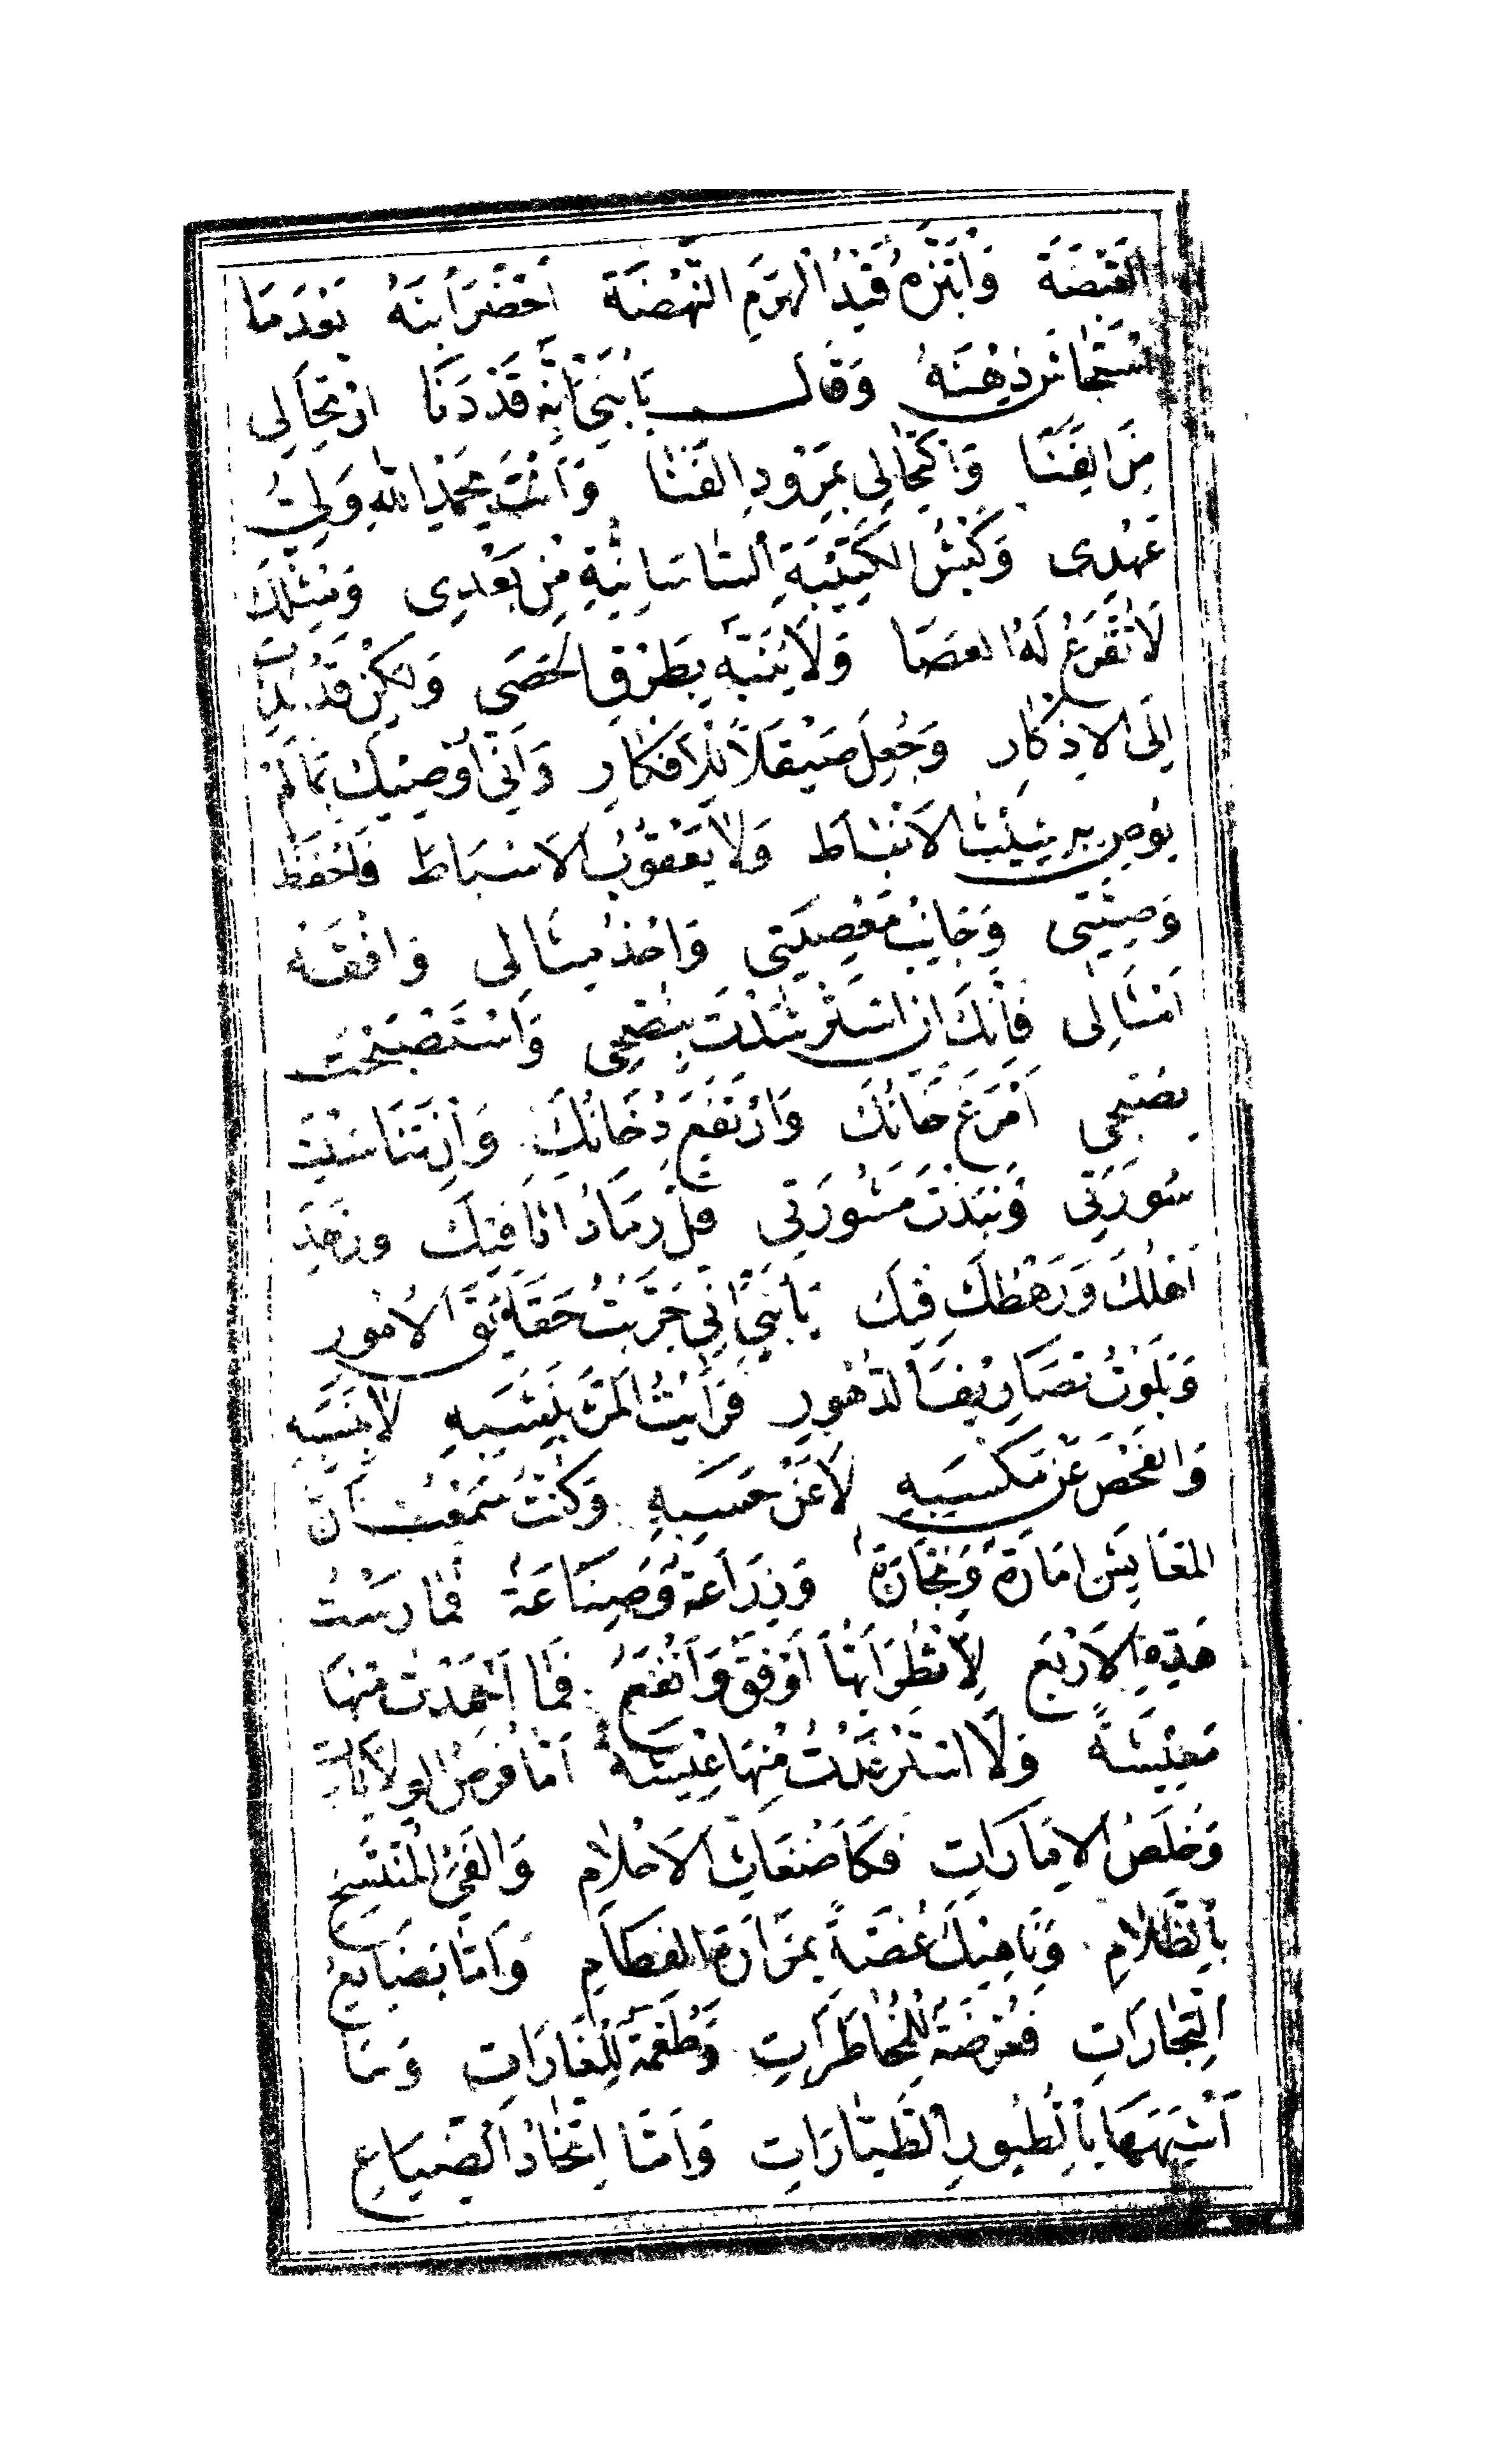 القَبْضَةَ وَابْتَزَّهُ قَيْدُ الْهَرَمِ النَّهْضَةَ اَحْضَرَ ابْنَهُ بَعْدَمَا
اسْتَجَاشَ ذِهْنَهُ وَقَالَ يَا بُنَيَّ اِنَّهُ قَدْ دَنَا ارْتِحَالِي
مِنَ الفِنَا وَاكْتِحَالِي بِمِرْوَدِ الفَنَا وَاَنْتَ بِحَمْدِ اللهِ وَلِيُّ
عَهْدِى وَكَبْشُ الكَتِيْبَةِ السَّاسَانِيَّةِ مِنْ بَعْدِى وَمِثْلُكَ
لَا تُقْرَعُ لَهُ العَصَا وَلَا يُنَبَّهُ بِطَرْقِ الحَصَى وَلكِنْ قَدْ نُدِبَ
اِلَى الاِذْكَارِ وَجُعِلَ صَيْقَلًا لِلْاَفْكَارِ وَاِنِّي اُوْصِيْكَ بِمَا لَمْ
يُوصِ بِهِ شِيْثٌ الاَنْبَاطَ وَلَا يَعْقُوْبُ الاَسْبَاطَ فَاحْفَظْ
وَصِيَّتِى وَجَانِبْ مَعْصِيَتِى وَاحْذُ مِثَالِى وَافْقَهْ
اَمْثَالِى فَاِنَّكَ اِنِ اسْتَرْشَدْتَ بِنُصْحِى وَاسْتَصْبَحْتَ
بِصُبْحِى اَمْرَعَ خَانُكَ وَارْتَفَعَ دُخَانُكَ وَاِنْ تَنَاسَيْتَ
سُورَتِى وَنَبَذْتَ مَشُورَتِى قَلَّ رَمَادُ اَثَافِيْكَ وزَهِدَ
اَهْلُكَ وَرَهْطُكَ فِيْكَ يَا بُنَيَّ اِنِّي جَرَّبْتُ حَقَائِقَ الاُمُورِ
وَبَلَوْتُ تَصَارِيْفَ الدُّهُورِ فَرَاَيْتُ المَرْءَ بِنَشَبِهِ لَا بِنَسَبِهِ
وَالفَحْصَ عَنْ مَكْسَبِهِ لَا عَنْ حَسَبِهِ وَكُنْتُ سَمِعْتُ اَنَّ
المَعَايِشَ اِمَارَةٌ وَتِجَارَةٌ وَزِرَاعَةٌ وَصِنَاعَةٌ فَمَارَسْتُ
هَذِهِ الاَرْبَعَ لِاَنْظُرَ اَيُّهَا اَوْفَقُ وَاَنْفَعُ فَمَا اَحْمَدْتُ مِنْهَا
مَعِيْشَةً وَلَا اسْتَرْغَدْتُ مِنْهَا عِيْشَةً اَمَّا فُرَصُ الوِلَايَاتِ
وَخُلَصُ الاِمَارَاتِ فَكَاَضْغَاثِ الاَحْلَامِ وَالفَيْءِ المُنْتَسِخِ
بِالظَّلَامِ وَنَاهِيْكَ غُصَّةً بِمَرَارَةِ الفِطَامِ وَاَمَّا بَضَايِعُ
التِّجَارَاتِ فَعُرْضَةٌ لِلْمُخَاطَرَاتِ وَطُعْمَةٌ لِلْغَارَاتِ وَمَا
اَشْبَهَهَا بِالطُّيُورِ الطَّيَّارَاتِ وَاَمَّا اِتِّخَاذُ الضِّيَاعِ